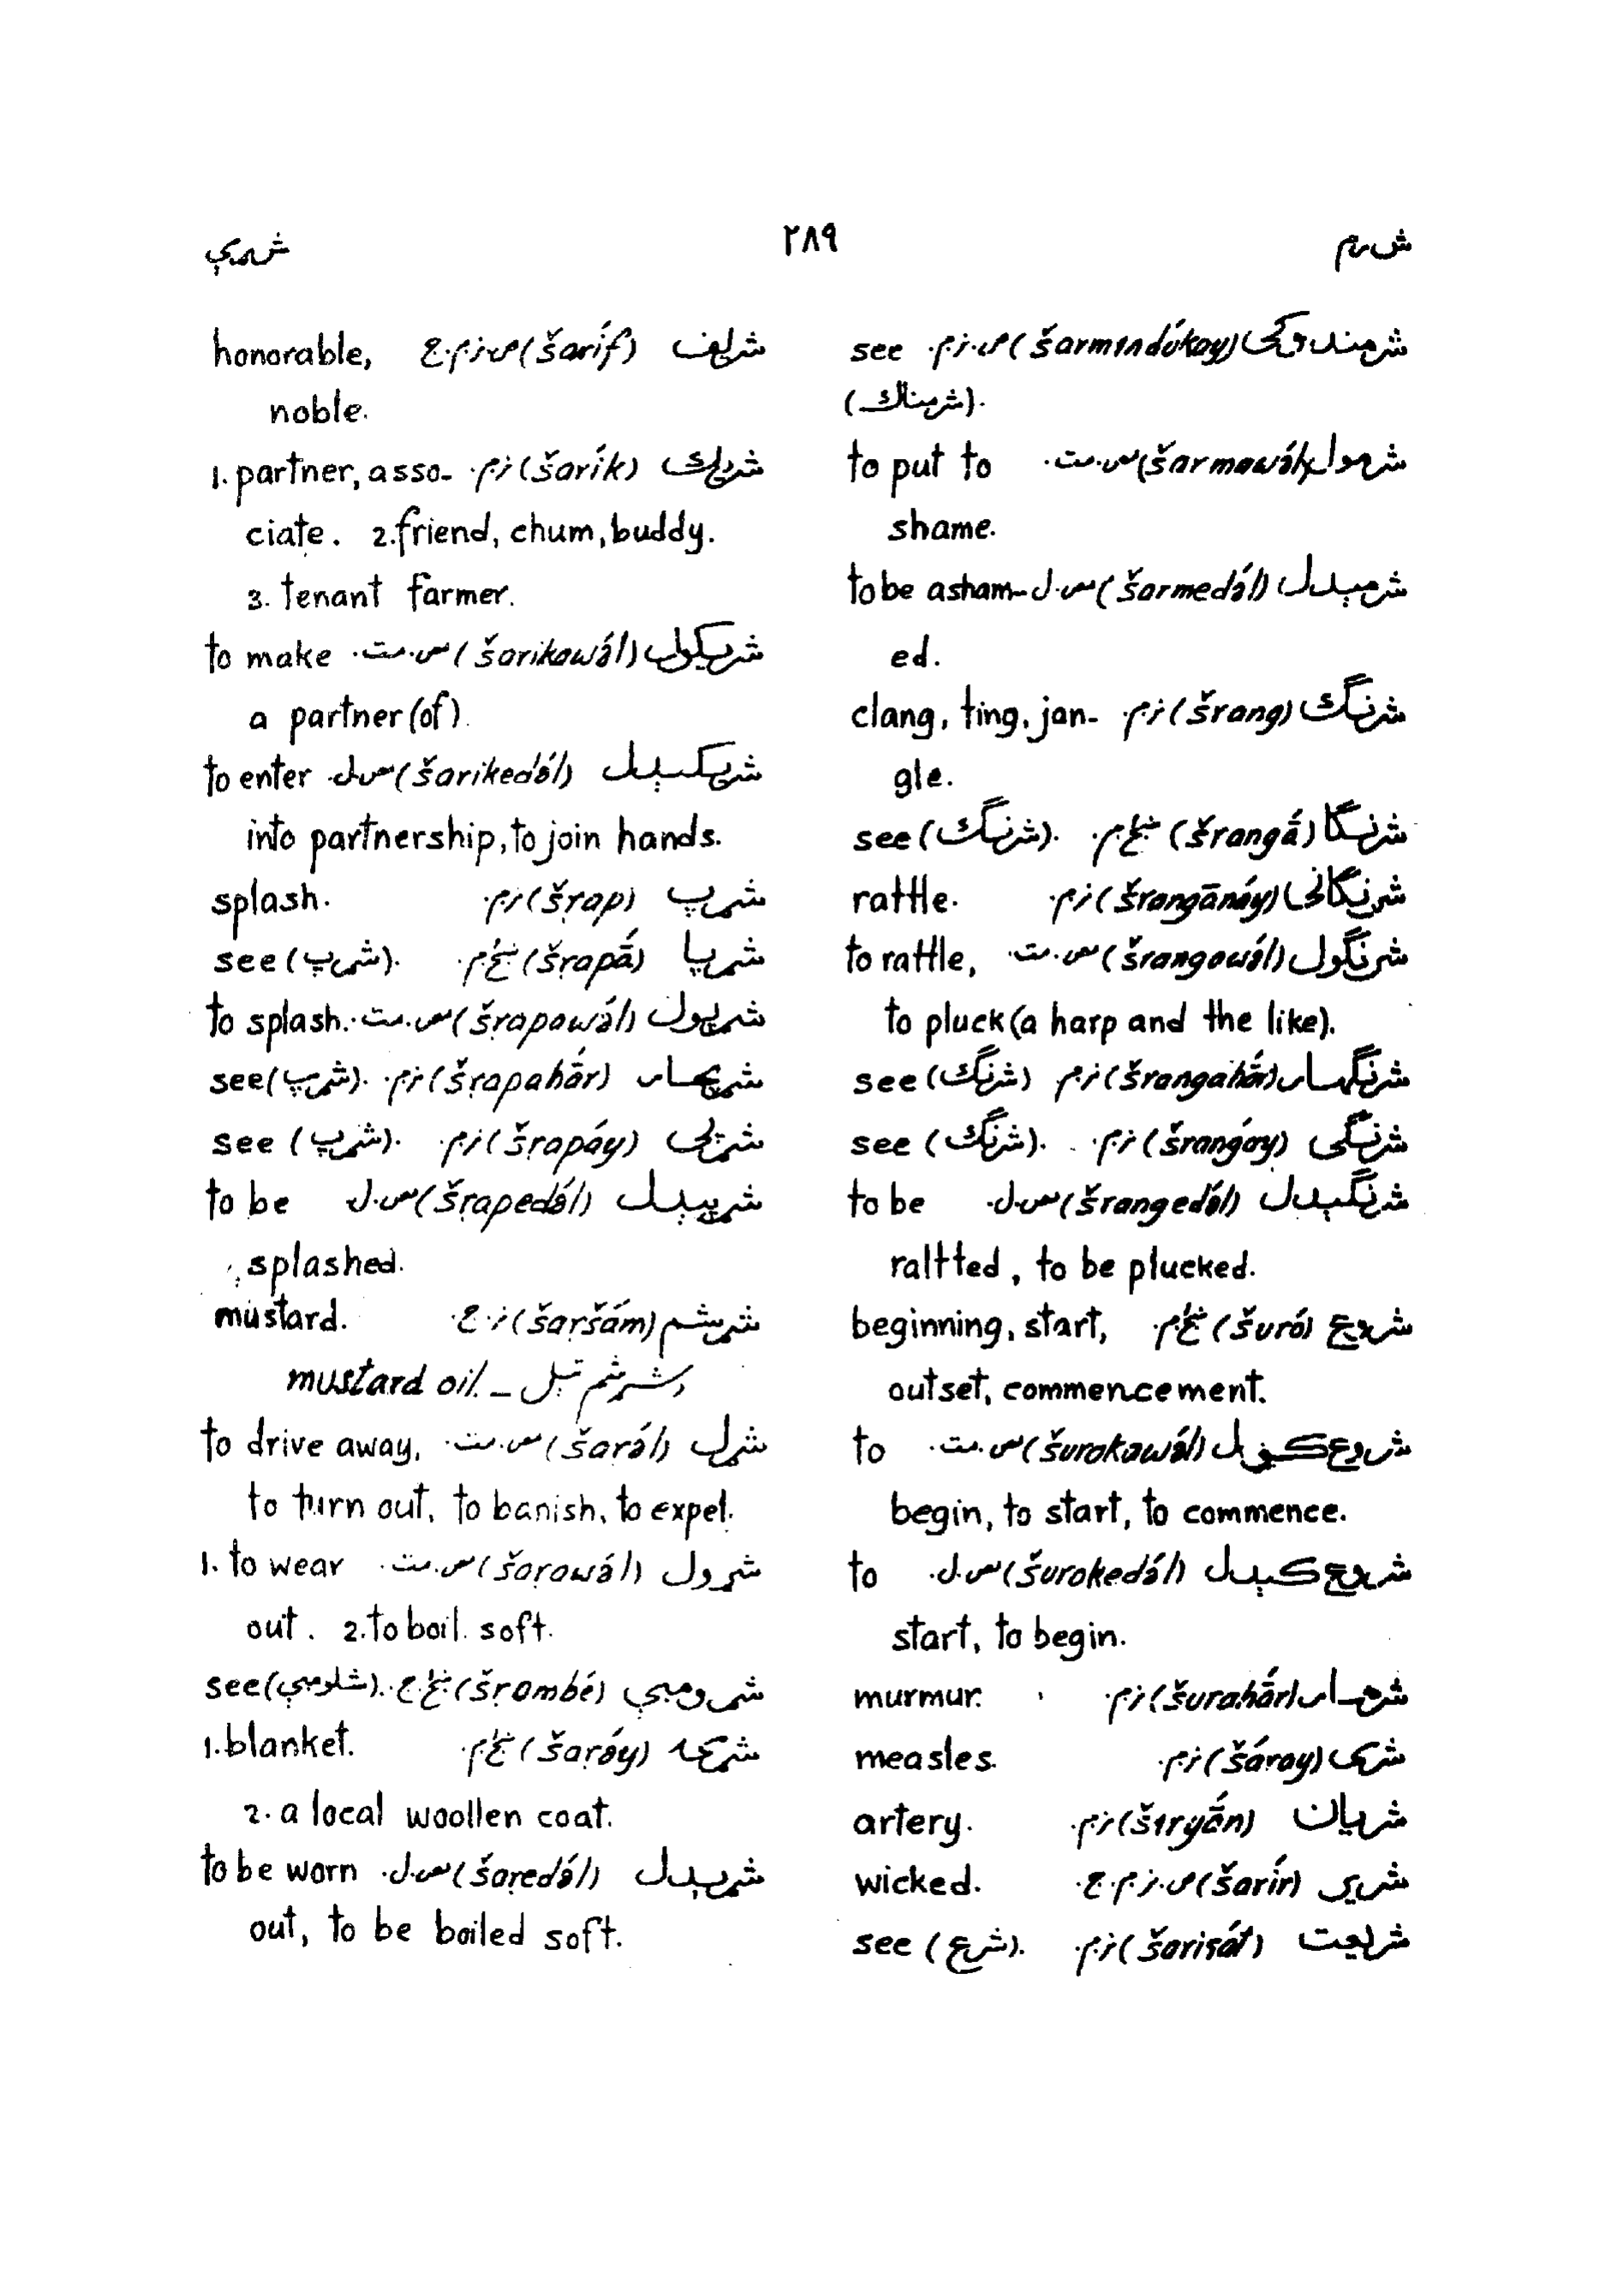 شرم ٢٨٩ شړې
شرمندوکی (šarmɪndúkay) ص.نر.م. see
(شرمناك).
شرمول (šarmawə́l) مص.مت. to put to
shame.
شرمېدل (šarmedə́l) مص.ل. to be asham-
ed.
شرنگ (šrang) نر.م. clang, ting, jan-
gle.
شرنگا (šrangā́) ښځ.م. see (شرنگ).
شرنگانی (šrangānáy) نر.م. rattle.
شرنگول (šrangawə́l) مص.مت. to rattle,
to pluck (a harp and the like).
شرنگهار (šrangahā́r) نر.م. see (شرنگ)
شرنگی (šrangáy) نر.م. see (شرنگ).
شرنگېدل (šrangedə́l) مص.ل. to be
raltted, to be plucked.
شروع (šuró) ښځ.م. beginning, start,
outset, commencement.
شروع کول (šurokawə́l) مص.مت. to
begin, to start, to commence.
شروع کېدل (šurokedə́l) مص.ل. to
start, to begin.
شرهار (šurahā́r) نر.م. murmur.
شری (šáray) نر.م. measles.
شریان (šɪryā́n) نر.م. artery.
شریر (šarír) ص.نر.م.ج. wicked.
شریعت (šariʕát) نر.م. see (شرع).
شریف (šaríf) ص.نر.م.ج honorable,
noble.
شریك (šarík) نر.م. 1. partner, asso-
ciate. 2. friend, chum, buddy.
3. tenant farmer.
شریکول (šarikawə́l) مص.مت. to make
a partner (of).
شریکېدل (šarikedə́l) مص.ل. to enter
into partnership, to join hands.
شړپ (šṛap) نر.م. splash.
شړپا (šṛapā́) ښځ.م. see (شړپ).
شړپول (šṛapawə́l) مص.مت. to splash.
شړپهار (šṛapahā́r) نر.م. see (شړپ).
شړپی (šṛapáy) نر.م. see (شړپ).
شړپېدل (šṛapedə́l) مص.ل. to be
splashed.
شړشم (šaṛšám) نر.ج. mustard.
دشړشم تېل – mustard oil.
شړل (šaṛə́l) مص.مت. to drive away,
to turn out, to banish, to expel.
شړول (šaṛawə́l) مص.مت. 1. to wear
out. 2. to boil soft.
شړومبې (šṛombé) ښځ.ج. see (شلومبې).
شړۍ (šaṛə́y) ښځ.م. 1. blanket.
2. a local woollen coat.
شړېدل (šaṛedə́l) مص.ل. to be worn
out, to be boiled soft.